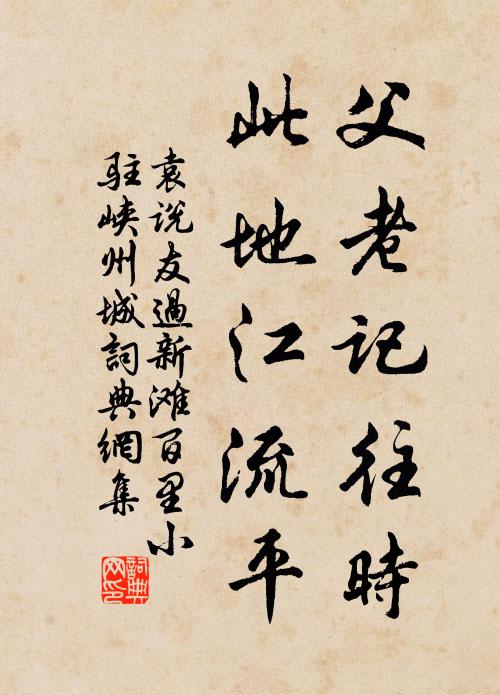 父老記往時
此地江流平
袁说友過新滩百里小
驻峡州城詞典網集
詞典网印